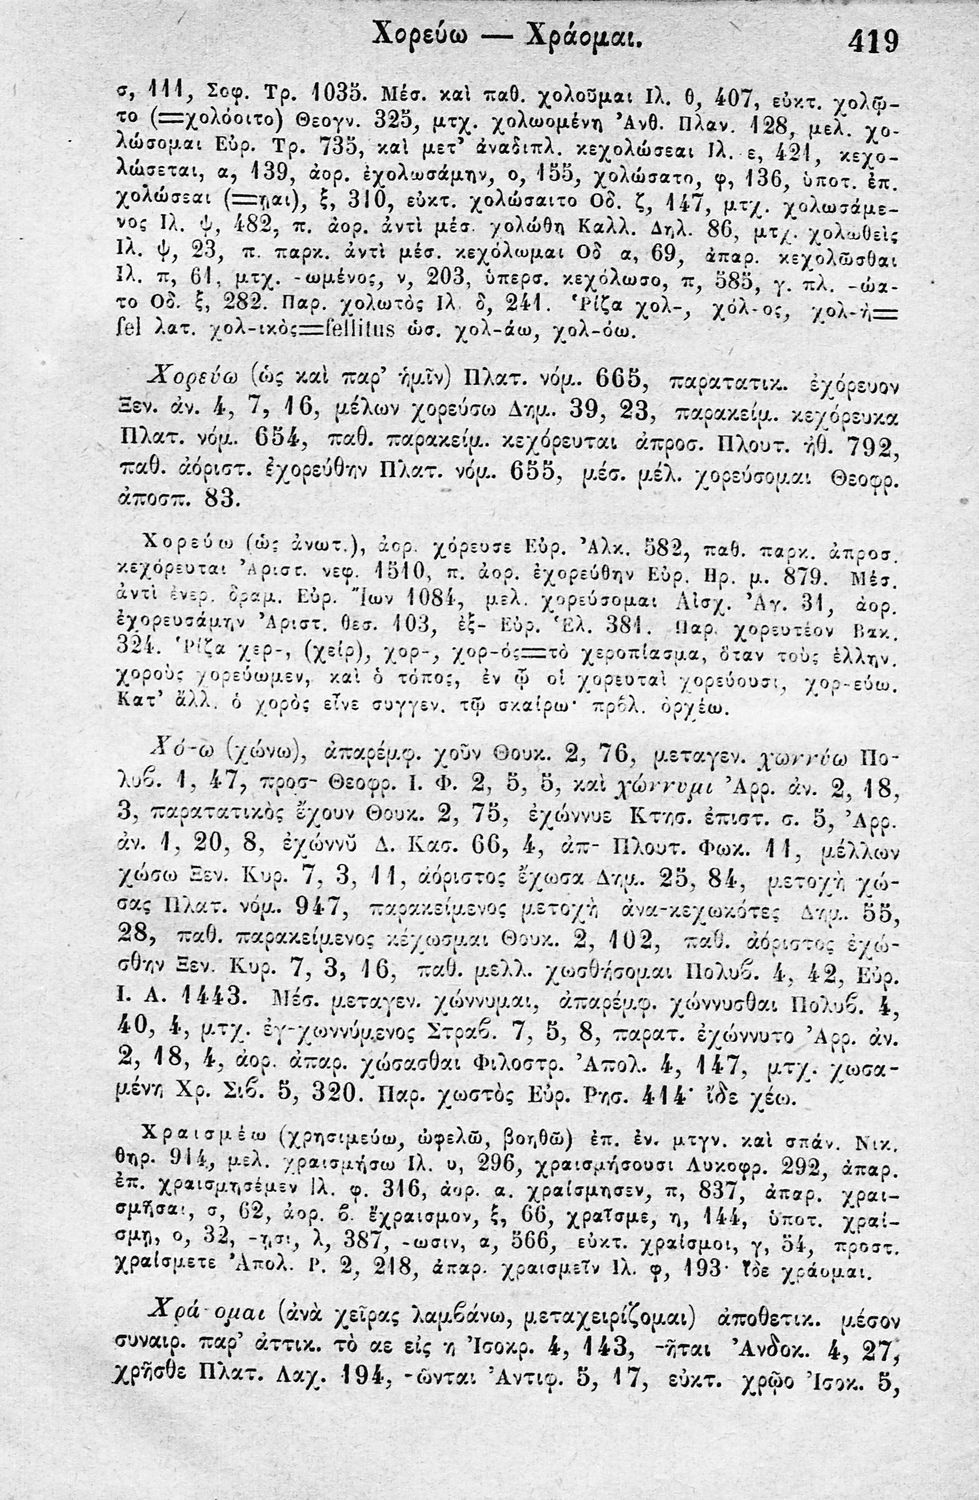 Χορεύω — Χράομαι. 419
σ, 111, Σοφ. Τρ. 1035. Μέσ. καὶ παθ. χολοῦμαι Ιλ. θ, 407, εὐκτ. χολῷ-
το (=χολόοιτο) Θεογν. 325, μτχ. χολωομένη Ἀνθ. Πλαν. 128, μελ. χο-
λώσομαι Εὐρ. Τρ. 735, καὶ μετ' ἀναδιπλ. κεχολώσεαι Ιλ. ε, 421, κεχο-
λώσεται, α, 139, ἀορ. ἐχολωσάμην, ο, 155, χολώσατο, φ, 136, ὑποτ. ἐπ.
χολώσεαι (=ῃαι), ξ, 310, εὐκτ. χολώσαιτο Οδ. ζ, 147, μτχ. χολωσάμε-
νος Ιλ. ψ, 482, π. ἀορ. ἀντὶ μέσ. χολώθη Καλλ. Δηλ. 86, μτχ. χολωθεὶς
Ιλ. ψ, 23, π. παρκ. ἀντὶ μέσ. κεχόλωμαι Οδ α, 69, ἀπαρ. κεχολῶσθαι
Ιλ. π, 61, μτχ. -ωμένος, ν, 203, ὑπερσ. κεχόλωσο, π, 585, γ. πλ. -ώα-
το Οδ. ξ, 282. Παρ. χολωτὸς Ιλ. δ, 241. Ῥίζα χολ-, χόλ-ος, χολ-ὴ=
fel λατ. χολ-ικὸς=fellitus ὡσ. χολ-άω, χολ-όω.
Χορεύω (ὡς καὶ παρ' ἡμῖν) Πλατ. νόμ. 665, παρατατικ. ἐχόρευον
Ξεν. ἀν. 4, 7, 16, μέλων χορεύσω Δημ. 39, 23, παρακείμ. κεχόρευκα
Πλατ. νόμ. 654, παθ. παρακείμ. κεχόρευται ἀπροσ. Πλουτ. ἠθ. 792,
παθ. ἀόριστ. ἐχορεύθην Πλατ. νόμ. 655, μέσ. μέλ. χορεύσομαι Θεοφρ.
ἀποσπ. 83.
Χορεύω (ὡς ἀνωτ.), ἀορ. χόρευσε Εὐρ. Ἀλκ. 582, παθ. παρκ. ἀπροσ.
κεχόρευται Ἀριστ. νεφ. 1510, π. ἀορ. ἐχορεύθην Εὐρ. Ηρ. μ. 879. Μέσ.
ἀντὶ ἐνερ. δραμ. Εὐρ. Ἴων 1084, μελ. χορεύσομαι Αἰσχ. Ἀγ. 31, ἀορ.
ἐχορευσάμην Ἀριστ. θεσ. 103, ἐξ- Εὐρ. Ἑλ. 381. Παρ. χορευτέον Βακ.
324. Ῥίζα χερ-, (χείρ), χορ-, χορ-ός=τὸ χεροπίασμα, ὅταν τοὺς ἑλλην.
χοροὺς χορεύωμεν, καὶ ὁ τόπος, ἐν ᾧ οἱ χορευταὶ χορεύουσι, χορ-εύω.
Κατ' ἄλλ. ὁ χορὸς εἶνε συγγεν. τῷ σκαίρω· πρβλ. ὀρχέω.
Χό-ω (χώνω), ἀπαρέμφ. χοῦν Θουκ. 2, 76, μεταγεν. χωννύω Πο-
λυβ. 1, 47, προσ- Θεοφρ. Ι. Φ. 2, 5, 5, καὶ χώννυμι Ἀρρ. ἀν. 2, 18,
3, παρατατικὸς ἔχουν Θουκ. 2, 75, ἐχώννυε Κτησ. ἐπιστ. σ. 5, Ἀρρ.
ἀν. 1, 20, 8, ἐχώννῦ Δ. Κασ. 66, 4, ἀπ- Πλουτ. Φωκ. 11, μέλλων
χώσω Ξεν. Κυρ. 7, 3, 11, ἀόριστος ἔχωσα Δημ. 25, 84, μετοχὴ χώ-
σας Πλατ. νόμ. 947, παρακείμενος μετοχὴ ἀνα-κεχωκότες Δημ. 55,
28, παθ. παρακείμενος κέχωσμαι Θουκ. 2, 102, παθ. ἀόριστος ἐχώ-
σθην Ξεν. Κυρ. 7, 3, 16, παθ. μελλ. χωσθήσομαι Πολυβ. 4, 42, Εὐρ.
Ι. Α. 1443. Μέσ. μεταγεν. χώννυμαι, ἀπαρέμφ. χώννυσθαι Πολυβ. 4,
40, 4, μτχ. ἐγ-χωννύμενος Στραβ. 7, 5, 8, παρατ. ἐχώννυτο Ἀρρ. ἀν.
2, 18, 4, ἀορ. ἀπαρ. χώσασθαι Φιλοστρ. Ἀπολ. 4, 147, μτχ. χωσα-
μένη Χρ. Σιβ. 5, 320. Παρ. χωστὸς Εὐρ. Ρησ. 414· ἴδε χέω.
Χραισμέω (χρησιμεύω, ὠφελῶ, βοηθῶ) ἐπ. ἐν. μτγν. καὶ σπάν. Νικ.
θηρ. 914, μελ. χραισμήσω Ιλ. υ, 296, χραισμήσουσι Λυκοφρ. 292, ἀπαρ.
ἐπ. χραισμησέμεν Ιλ. φ. 316, ἀορ. α. χραίσμησεν, π, 837, ἀπαρ. χραι-
σμῆσαι, σ, 62, ἀορ. β. ἔχραισμον, ξ, 66, χραῖσμε, η, 144, ὑποτ. χραί-
σμῃ, ο, 32, -ῃσι, λ, 387, -ωσιν, α, 566, εὐκτ. χραίσμοι, γ, 54, προστ.
χραίσμετε Ἀπολ. Ρ. 2, 218, ἀπαρ. χραισμεῖν Ιλ. φ, 193· ἴδε χράομαι.
Χρά-ομαι (ἀνὰ χεῖρας λαμβάνω, μεταχειρίζομαι) ἀποθετικ. μέσον
συναιρ. παρ' ἀττικ. τὸ αε εἰς η Ἰσοκρ. 4, 143, -ῆται Ἀνδοκ. 4, 27,
χρῆσθε Πλατ. Λαχ. 194, -ῶνται Ἀντιφ. 5, 17, εὐκτ. χρῷο Ἰσοκ. 5,